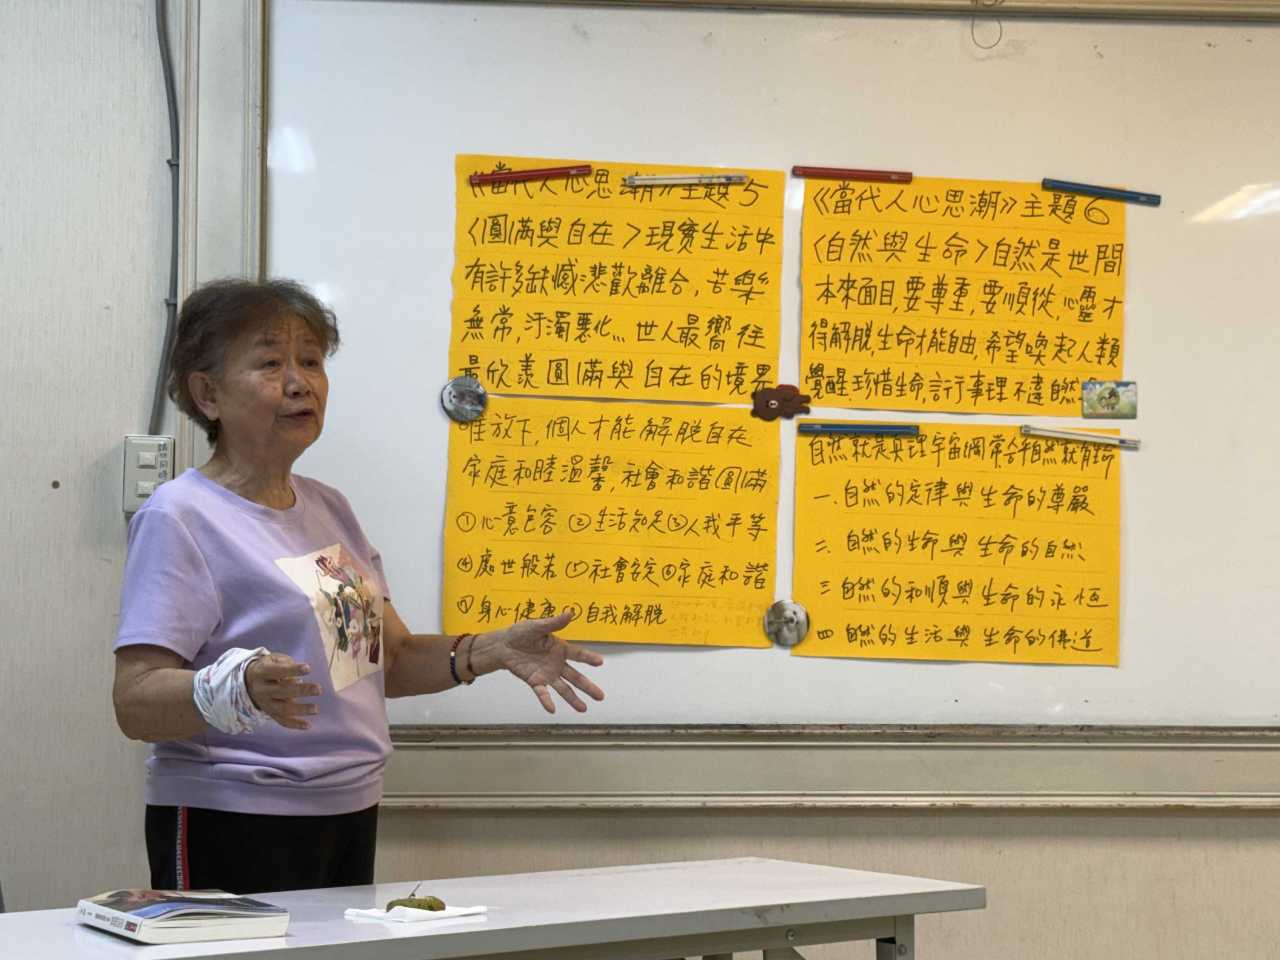 《當代人心思潮》主題5
〈圓滿與自在〉現實生活中
有許多缺憾悲歡離合，苦樂
無常，汙濁惡化… 世人最嚮往
最欣羨圓滿與自在的境界
唯放下，個人才能解脫自在
家庭和睦溫馨，社會和諧圓滿
①心意包容 ②生活知足③人我平等
④處世般若⑤社會安定⑥家庭和諧
⑦身心健康⑧自我解脫
《當代人心思潮》主題6
〈自然與生命〉自然是世間
本來面目，要尊重，要順從，心靈才
得解脫，生命才能自由，希望喚起人類
覺醒，珍惜生命，言行事理不違自然
自然就是真理宇宙綱常，合乎自然就有生命
一．自然的定律與生命的尊嚴
二．自然的生命與生命的自然
三．自然的和順與生命的永恆
四 自然的生活與生命的佛道